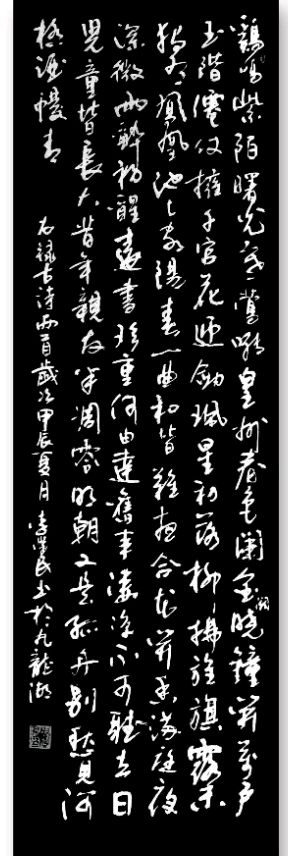 鷄鳴紫陌曙光寒鶯囀皇州春色闌金闕曉鐘開萬户
玉階僊仗擁千官花迎劍珮星初落柳拂旌旗露未
獨有鳳凰池上客陽春一曲和皆難夜合花開香滿庭夜
深微雨醉初醒遠書珍重何由達舊事淒涼不可聽去日
兒童皆長大昔年親友半凋零明朝又是孤舟別愁見河
橋酒幔青
右録古詩兩首歲次甲辰夏月李榮民書於九龍湖